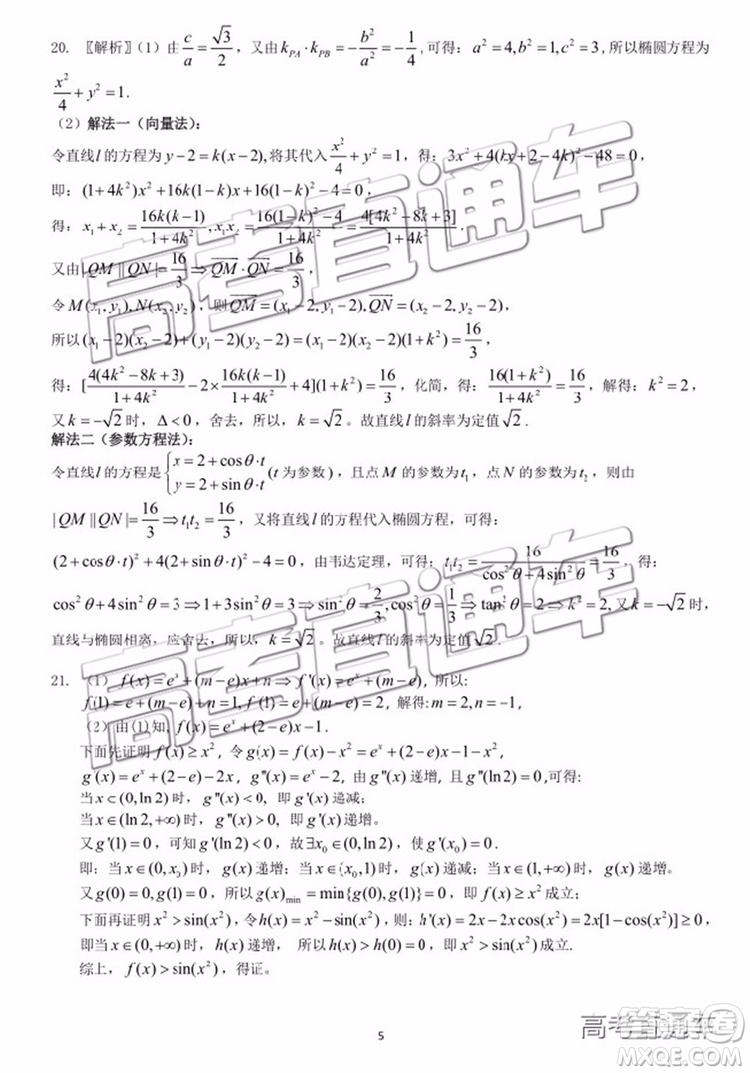 20. 〖解析〗(1) 由 c/a = √3/2，又由 k_PA · k_PB = −b²/a² = −1/4，可得：a² = 4, b² = 1, c² = 3，所以椭圆方程为
x²/4 + y² = 1.
(2) 解法一（向量法）：
令直线 l 的方程为 y−2 = k(x−2), 将其代入 x²/4 + y² = 1，得：3x² + 4(kx+2−4k)²−48 = 0，
即：(1+4k²)x² + 16k(1−k)x + 16(1−k)²−4 = 0，
得：x₁+x₂ = 16k(k−1)/(1+4k²), x₁x₂ = (16(1−k)²−4)/(1+4k²) = 4[4k²−8k+3]/(1+4k²).
又由|QM||QN| = 16/3 ⇒ QM · QN = 16/3，
令 M(x₁,y₁), N(x₂,y₂)，则 QM = (x₁−2, y₁−2), QN = (x₂−2, y₂−2)，
所以 (x₁−2)(x₂−2)+(y₁−2)(y₂−2) = (x₁−2)(x₂−2)(1+k²) = 16/3，
得：[4(4k²−8k+3)/(1+4k²) − 2×16k(k−1)/(1+4k²) + 4](1+k²) = 16/3，化简，得：16(1+k²)/(1+4k²) = 16/3，解得：k² = 2，
又 k = −√2 时，Δ < 0，舍去，所以，k = √2。故直线 l 的斜率为定值 √2 .
解法二（参数方程法）：
令直线 l 的方程是 {x = 2+cosθ·t
y = 2+sinθ·t (t 为参数)，且点 M 的参数为 t₁，点 N 的参数为 t₂，则由
|QM||QN| = 16/3 ⇒ t₁t₂ = 16/3，又将直线 l 的方程代入椭圆方程，可得：
(2+cosθ·t)² + 4(2+sinθ·t)²−4 = 0，由韦达定理，可得：t₁t₂ = 16/(cos²θ+4sin²θ) = 16/3，得：
cos²θ+4sin²θ = 3 ⇒ 1+3sin²θ = 3 ⇒ sin²θ = 2/3, cos²θ = 1/3 ⇒ tan²θ = 2 ⇒ k² = 2, 又 k = −√2 时，
直线与椭圆相离，应舍去，所以，k = √2。故直线 l 的斜率为定值 √2 .
21. (1) f(x) = eˣ+(m−e)x+n ⇒ f'(x) = eˣ+(m−e)，所以：
f(1) = e+(m−e)+n = 1, f'(1) = e+(m−e) = 2，解得：m = 2, n = −1,
(2) 由(1)知, f(x) = eˣ+(2−e)x−1.
下面先证明 f(x) ≥ x²，令 g(x) = f(x)−x² = eˣ+(2−e)x−1−x²，
g'(x) = eˣ+(2−e)−2x，g''(x) = eˣ−2，由 g''(x) 递增，且 g''(x) = 0,可得：
当 x∈(0,ln2) 时，g''(x) < 0，即 g'(x) 递减；
当 x∈(ln2,+∞) 时，g''(x) > 0，即 g'(x) 递增.
又 g'(1) = 0，g'(ln2) < 0，故∃x₀∈(0,ln2)，使 g'(x₀) = 0
即：当 x∈(0,x₀) 时，g(x) 递增；当 x∈(x₀,1) 时，g(x) 递减；当 x∈(1,+∞) 时，g(x) 递增.
又 g(0) = 0, g(1) = 0，所以 g(x)min = min{g(0),g(1)} = 0，即 f(x) ≥ x² 成立；
下面再证明 x² > sin(x²)，令 h(x) = x²−sin(x²)，则：h'(x) = 2x−2xcos(x²) = 2x[1−cos(x²)] > 0，
即当 x∈(0,+∞) 时，h(x) 递增， 所以 h(x) > h(0) = 0，即 x² > sin(x²) 成立.
综上，f(x) > sin(x²)，得证。
5
高考直通车
高考直通车
高考直通车
MXQE.COM